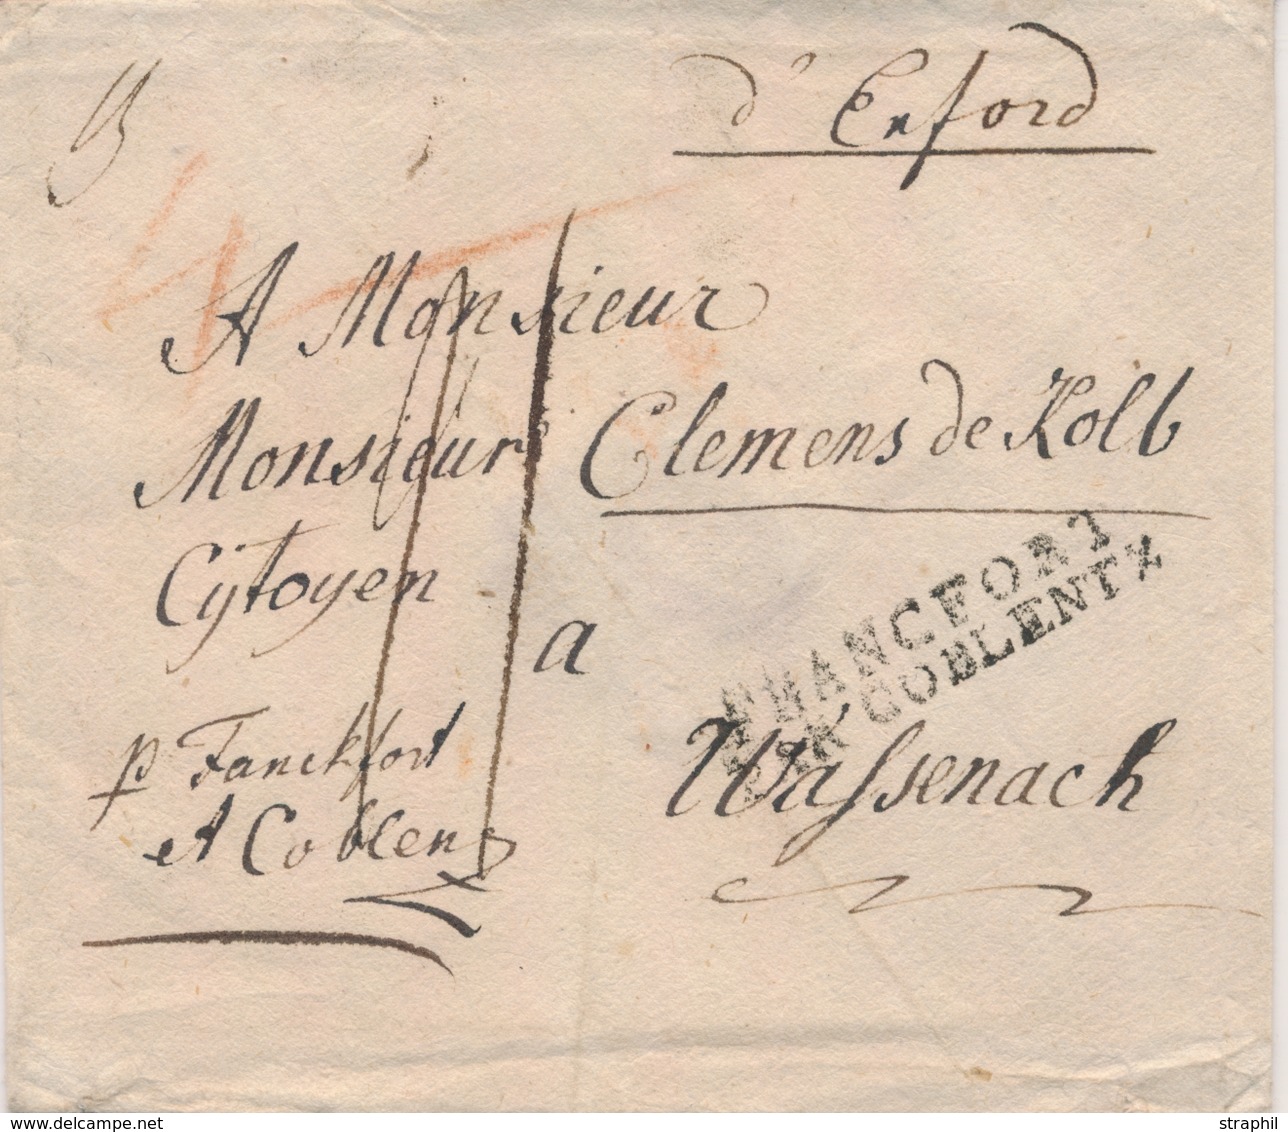 d'Erford
A Monsieur
Monsieur Clemens de Kolb
Cytoyen
a
FRANCFORT
PAR COBLENTZ
Wassenach
p Fanckfort
et Coblenz
delcampe.net
straphil